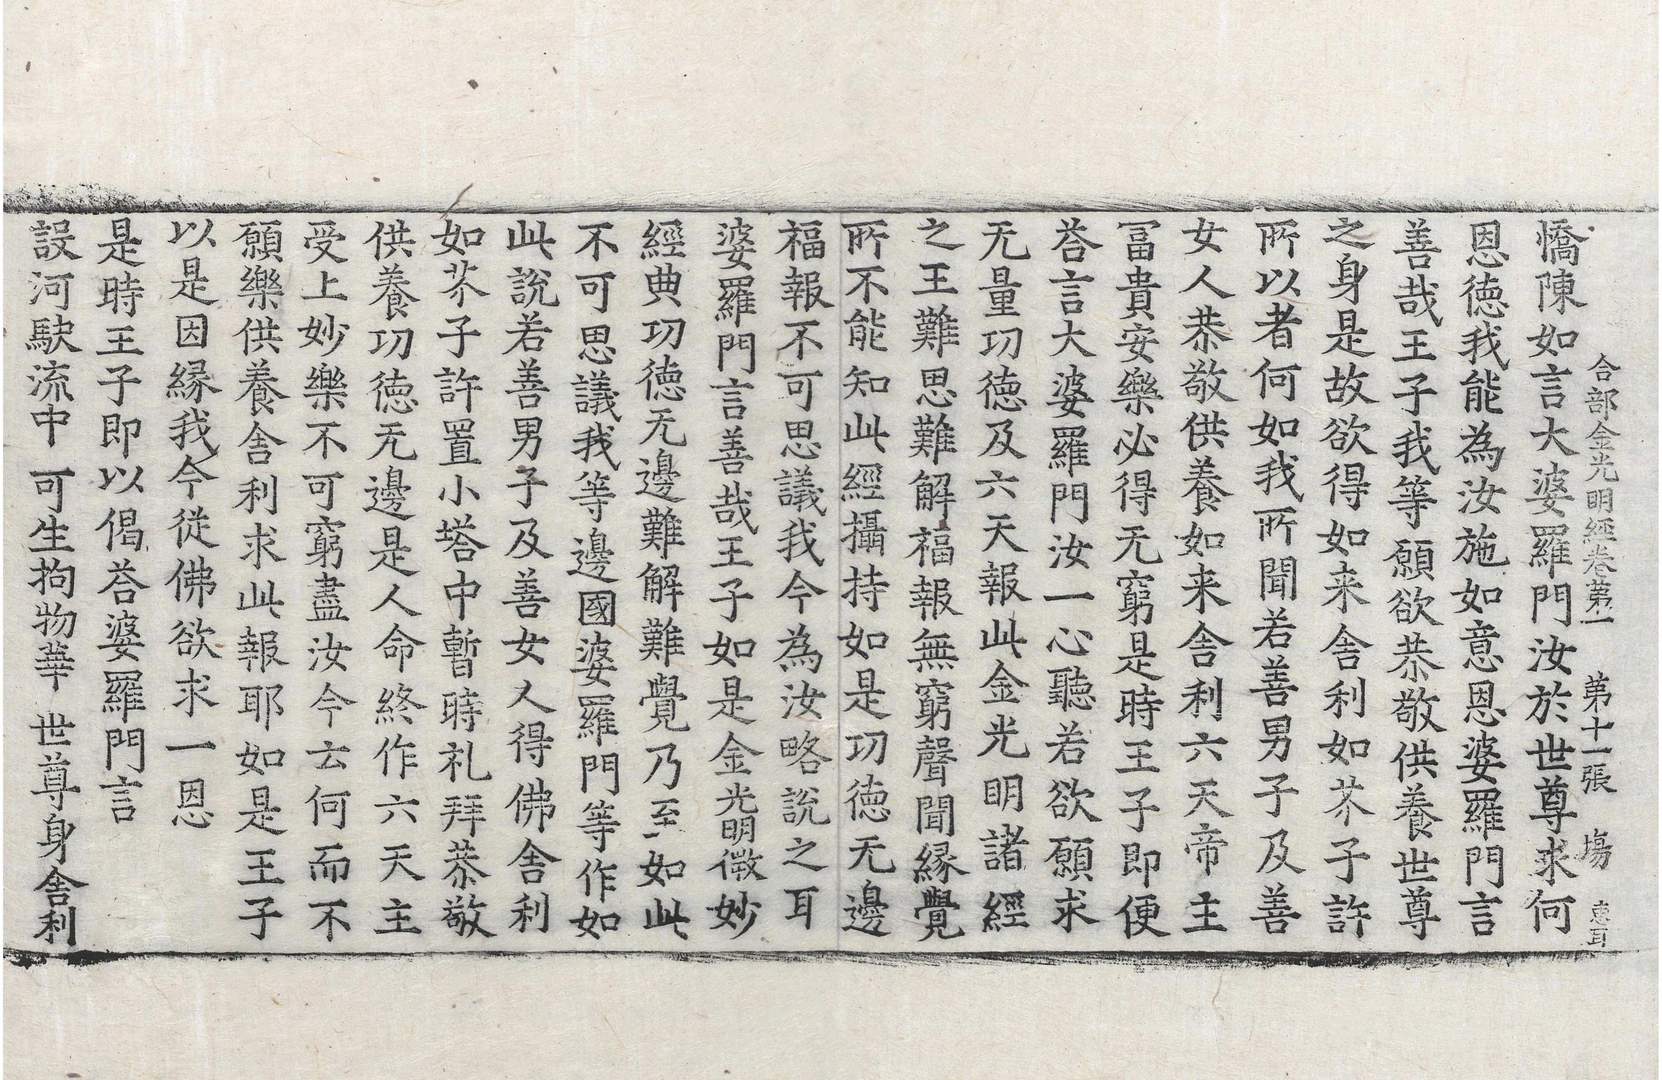 合部金光明經卷第一　第十一張　塲　惠耳
憍陳如言大婆羅門汝於世尊求何
恩徳我能為汝施如意恩婆羅門言
善哉王子我等願欲恭敬供養世尊
之身是故欲得如来舍利如芥子許
所以者何如我所聞若善男子及善
女人恭敬供養如来舍利六天帝主
冨貴安樂必得无窮是時王子即便
荅言大婆羅門汝一心聽若欲願求
无量功徳及六天報此金光明諸經
之王難思難解福報無窮聲聞縁覺
所不能知此經攝持如是功徳无邊
福報不可思議我今為汝略說之耳
婆羅門言善哉王子如是金光明微妙
經典功徳无邊難解難覺乃至如此
不可思議我等邊國婆羅門等作如
此說若善男子及善女人得佛舍利
如芥子許置小塔中暫時礼拜恭敬
供養功徳无邊是人命終作六天主
受上妙樂不可窮盡汝今云何而不
願樂供養舍利求此報耶如是王子
以是因縁我今従佛欲求一恩
是時王子即以偈荅婆羅門言
設河駛流中　可生拘物華　世尊身舍利